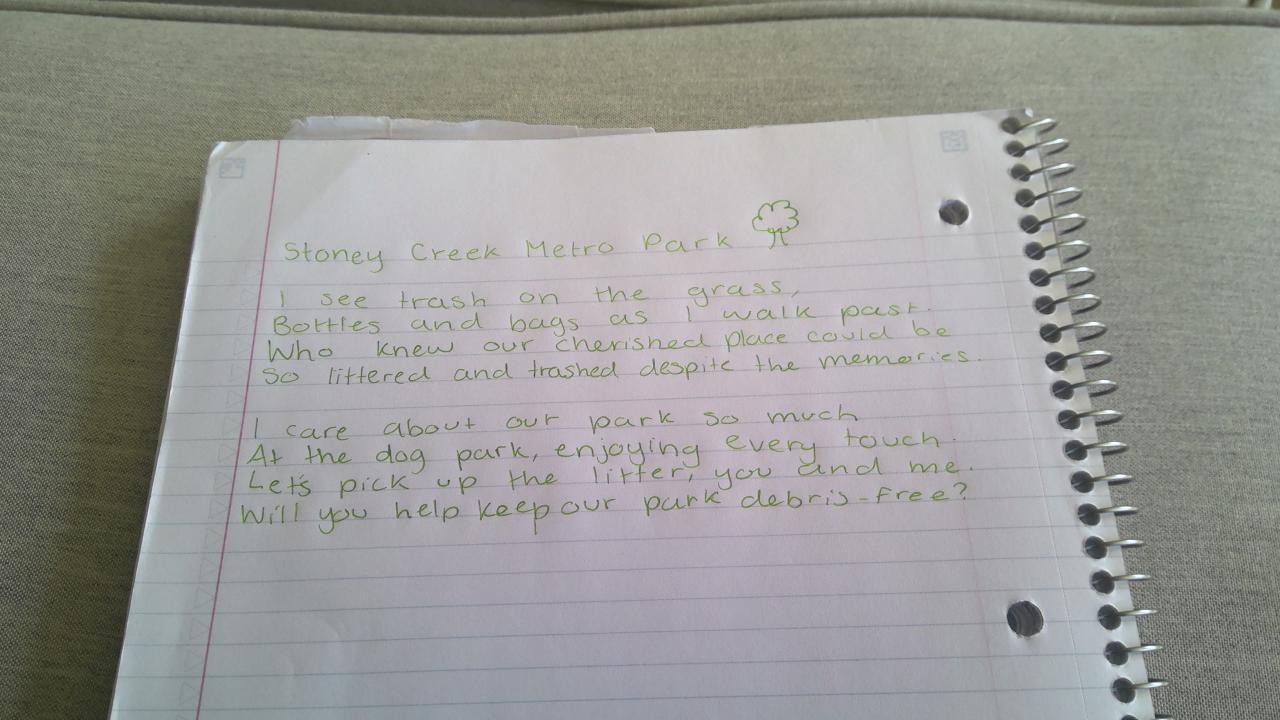 Stoney Creek Metro Park
I see trash on the grass,
Bottles and bags as I walk past.
Who knew our cherished place could be
So littered and trashed despite the memories.
I care about our park so much
At the dog park, enjoying every touch.
Let's pick up the litter, you and me.
Will you help keep our park debris-free?